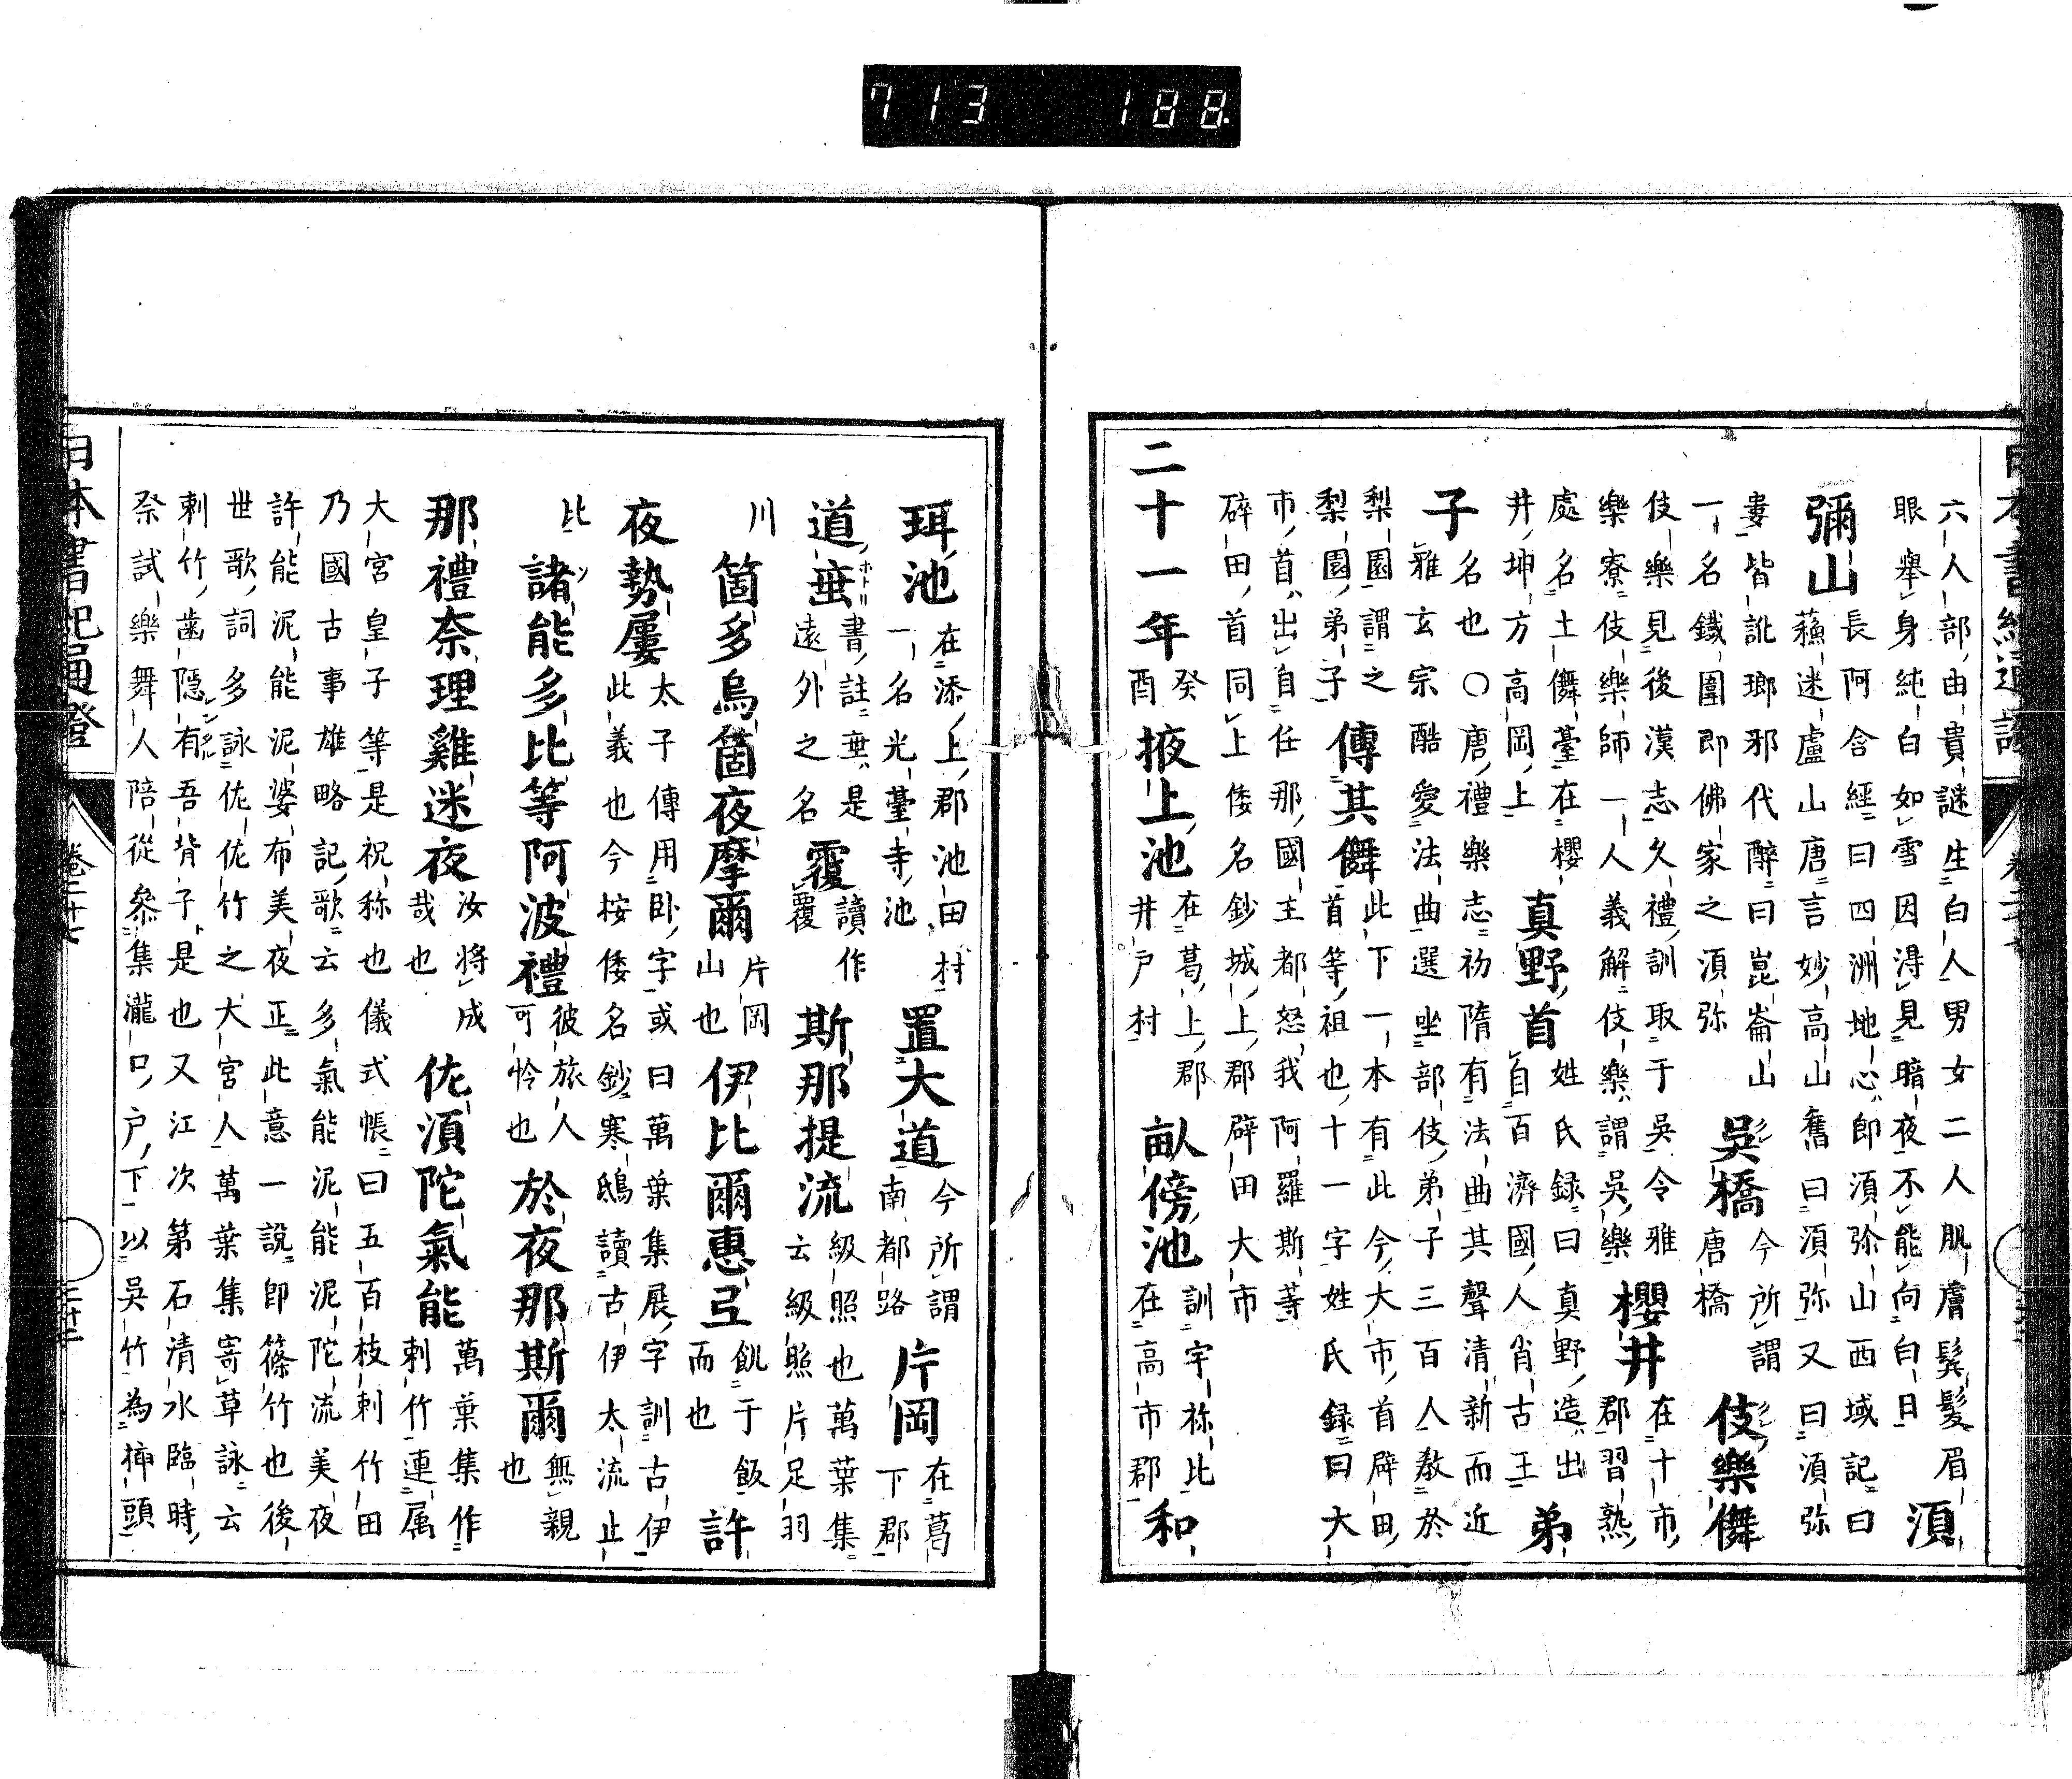 713 188
六人部由貴謎生白人男女二人肌膚髪髪眉
眼舉身純白如雪因得見暗夜不能向白日
須
彌山
長阿含經曰四洲地心即須弥山西域記曰
蘓迷盧山唐言妙高山舊曰須弥又曰須弥
婁皆訛瑯邪代醉曰崑崙山
一名鐵圍即佛家之須弥
吳橋
今所謂
唐橋
伎樂儛
伎樂見後漢志久禮訓取于吳今雅
樂寮伎樂師一人義解伎樂謂吳樂
櫻井
在十市
郡習熟
處名土儛臺在櫻
井坤方高岡上
真野首
姓氏録曰真野造出
自百濟國人肖古王
弟
子
名也〇唐禮樂志初隋有法曲其聲清新而近
雅玄宗酷愛法曲選坐部伎弟子三百人教於
梨園謂之
梨園弟子
傳其儛
此下一本有此今大市首辟田
首等祖也十一字姓氏録曰大
市首出自任那國主都怒我阿羅斯等
碎田首同上倭名鈔城上郡辟田大市
二十一年
癸
酉
掖上池
在葛上郡
井戸村
畝傍池
訓宇祢比
在高市郡
和
珥池
在添上郡池田村
一名光臺寺池
置大道
今所謂
南都路
片岡
在葛
下郡
道垂
ホトリ
書註垂是
遠外之名
覆
讀作
覆
斯那提流
級照也萬葉集
云級照片足羽
川
箇多烏箇夜摩爾
片岡
山也
伊比爾惠弖
飢于飯
而也
許
夜勢屢
太子傳用卧字或曰萬葉集展字訓古伊
此義也今按倭名鈔寒鴟讀古伊太流止
比
諸能多比等阿波禮
ソ
彼旅人
可怜也
於夜那斯爾
無親
也
那禮奈理雞迷夜
汝將成
哉也
佐須陀氣能
萬葉集作
刺竹連属
大宮皇子等是祝称也儀式帳曰五百枝刺竹田
乃國古事雄略記歌云多氣能泥能泥陀流美夜
許能泥能泥婆布美夜正此意一説即篠竹也後
世歌詞多詠佐佐竹之大宮人萬葉集寄草詠云
刺竹齒隠有吾背子是也又江次第石清水臨時
祭試樂舞人陪從參集瀧口戸下以吳竹為挿頭
日本書紀通證
卷二十七